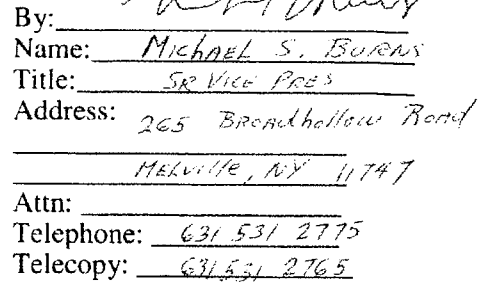 By:
Name: Michael S. Burns
Title: SR Vice Pres
Address: 265 Broadhollow Road
Melville, NY 11747
Attn:
Telephone: 631 531 2775
Telecopy: 631 531 2765